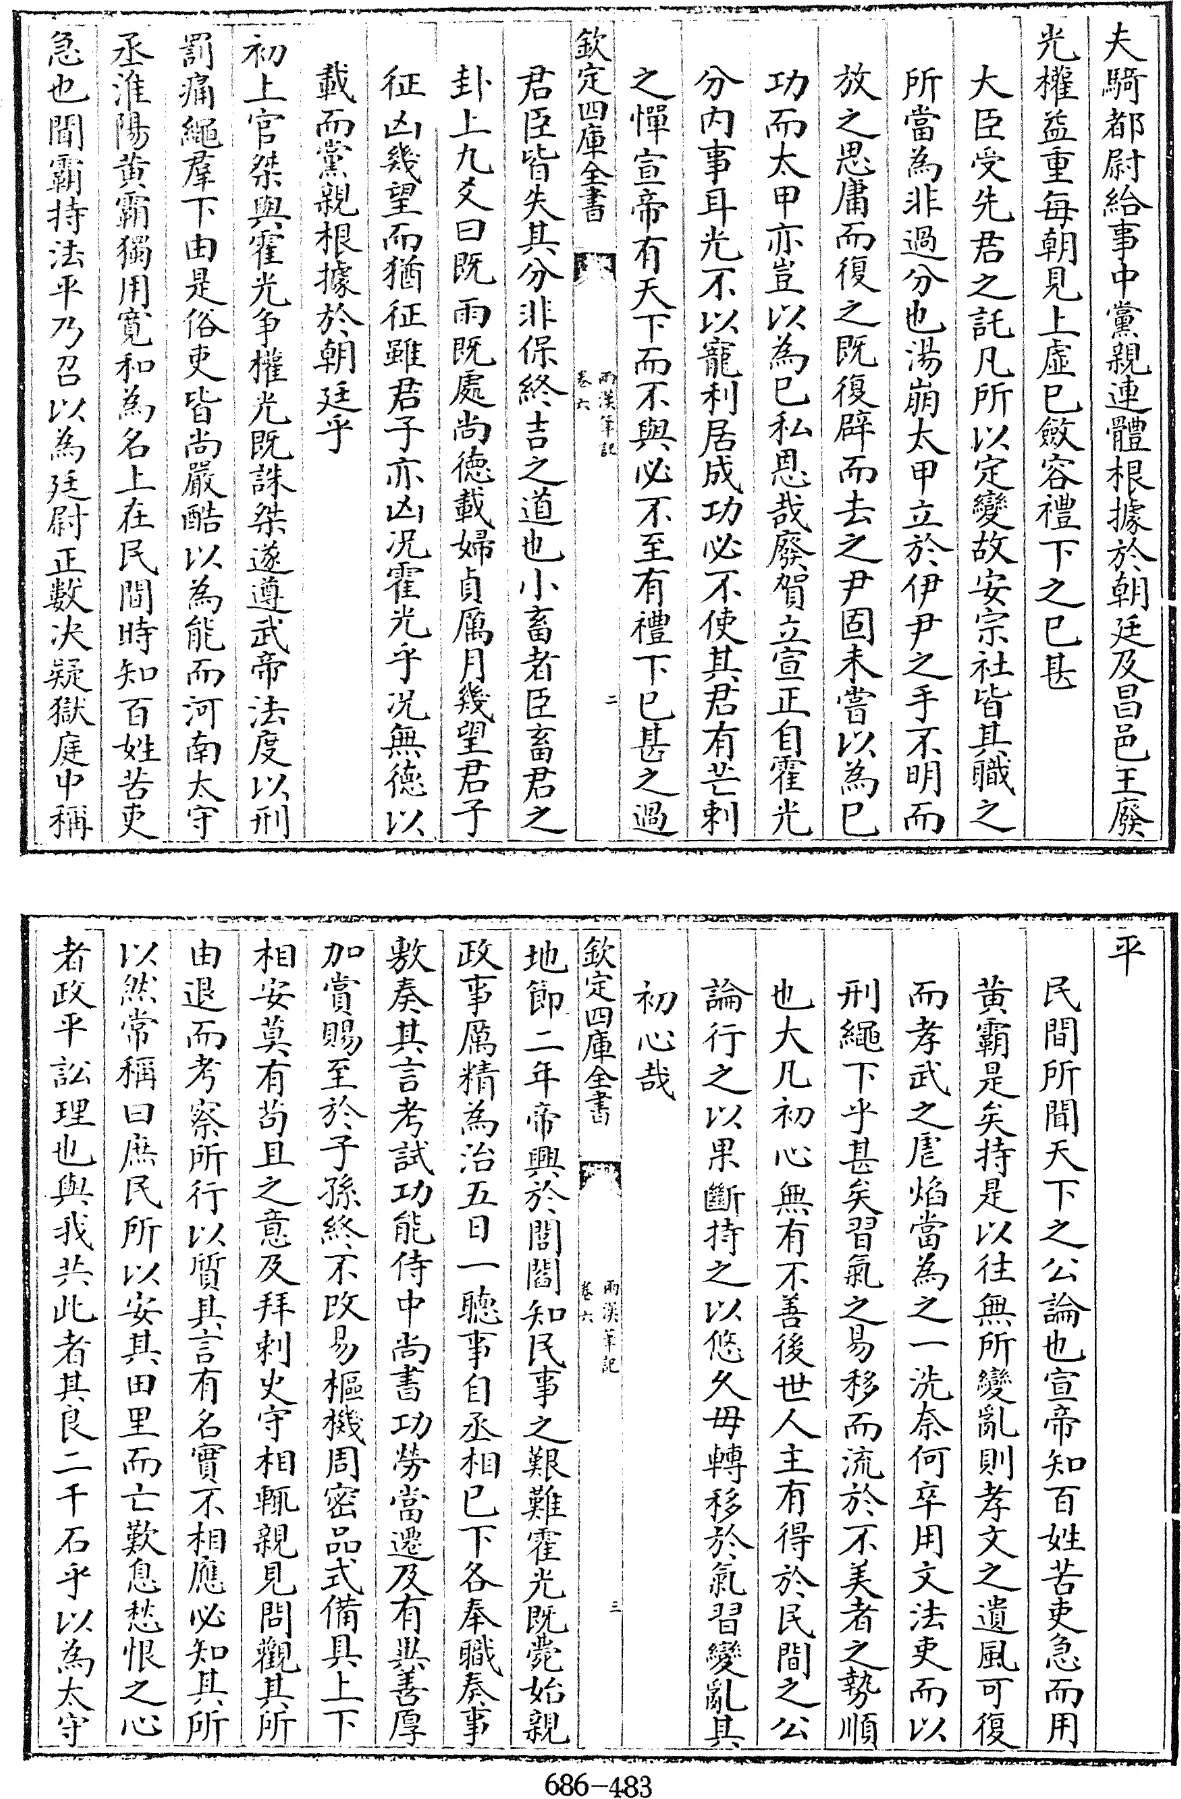 夫騎都尉給事中黨親連體根據於朝廷及昌邑王廢
光權益重每朝見上虛已斂容禮下之已甚
大臣受先君之託凡所以定變故安宗社皆其職之
所當為非過分也湯崩太甲立於伊尹之手不明而
放之思庸而復之既復辟而去之尹固未嘗以為已
功而太甲亦豈以為已私恩哉廢賀立宣正自霍光
分内事耳光不以寵利居成功必不使其君有芒刺
之憚宣帝有天下而不與必不至有禮下已甚之過
欽定四庫全書
兩漢筆記
卷六
二
君臣皆失其分非保終吉之道也小畜者臣畜君之
卦上九爻曰既雨既處尚德載婦貞厲月幾望君子
征凶幾望而猶征雖君子亦凶况霍光乎况無德以
載而黨親根據於朝廷乎
初上官桀與霍光争權光既誅桀遂遵武帝法度以刑
罰痛繩羣下由是俗吏皆尚嚴酷以為能而河南太守
丞淮陽黄霸獨用寬和為名上在民間時知百姓苦吏
急也聞霸持法平乃召以為廷尉正數决疑獄庭中稱
平
民間所聞天下之公論也宣帝知百姓苦吏急而用
黄霸是矣持是以往無所變亂則孝文之遺風可復
而孝武之虐焰當為之一洗奈何卒用文法吏而以
刑繩下乎甚矣習氣之易移而流於不美者之勢順
也大凡初心無有不善後世人主有得於民間之公
論行之以果斷持之以悠久毋轉移於氣習變亂其
初心哉
欽定四庫全書
兩漢筆記
卷六
三
地節二年帝興於閭閻知民事之艱難霍光既薨始親
政事厲精為治五日一聽事自丞相已下各奉職奏事
敷奏其言考試功能侍中尚書功勞當遷及有異善厚
加賞賜至於子孫終不改易樞機周密品式備具上下
相安莫有苟且之意及拜刺史守相輒親見問觀其所
由退而考察所行以質其言有名實不相應必知其所
以然常稱曰庶民所以安其田里而亡歎息愁恨之心
者政平訟理也與我共此者其良二千石乎以為太守
686-483